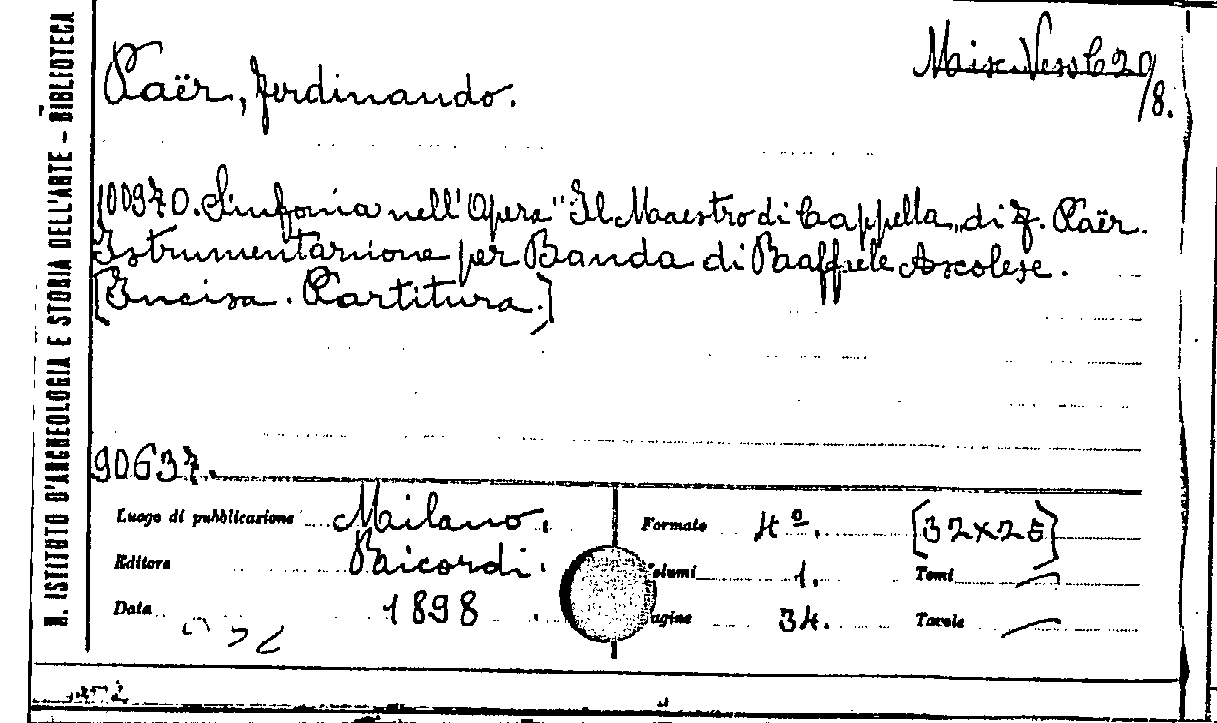 R. ISTITUTO D'ARCHEOLOGIA E STORIA DELL'ARTE - BIBLIOTECA
Misc. Vess C 20/8.
Paër, Ferdinando.
100970. Sinfonia nell'Opera "Il Maestro di Cappella„ di F. Paër.
Istrumentazione per Banda di Raffaele Ascolese.
[Incisa. Partitura.]
90637.
Luogo di pubblicazione Milano. Formato 4º. [32x25]
Editore Ricordi. Volumi 1. Tomi —
Data 1898 Pagine 34. Tavole —